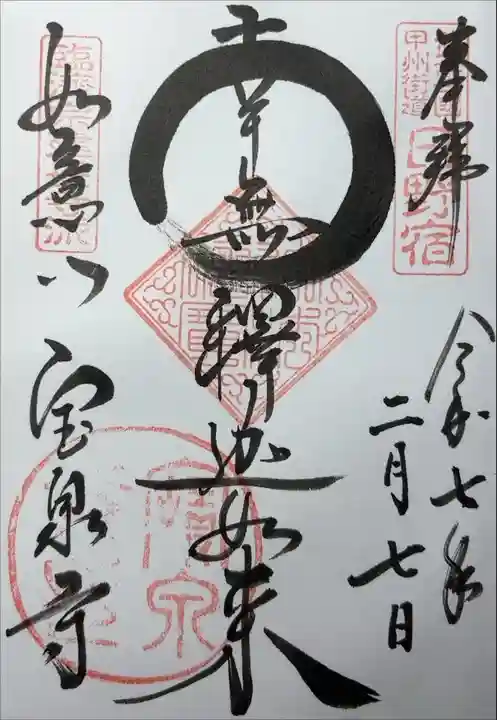 奉拝
甲州街道
日野宿
令和七年
二月七日
南無釋迦如来
如意山宝泉寺